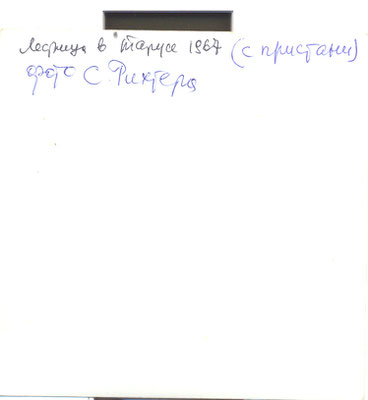 Лестница в Тарусе 1967 (с пристани)
фото С. Рихтера